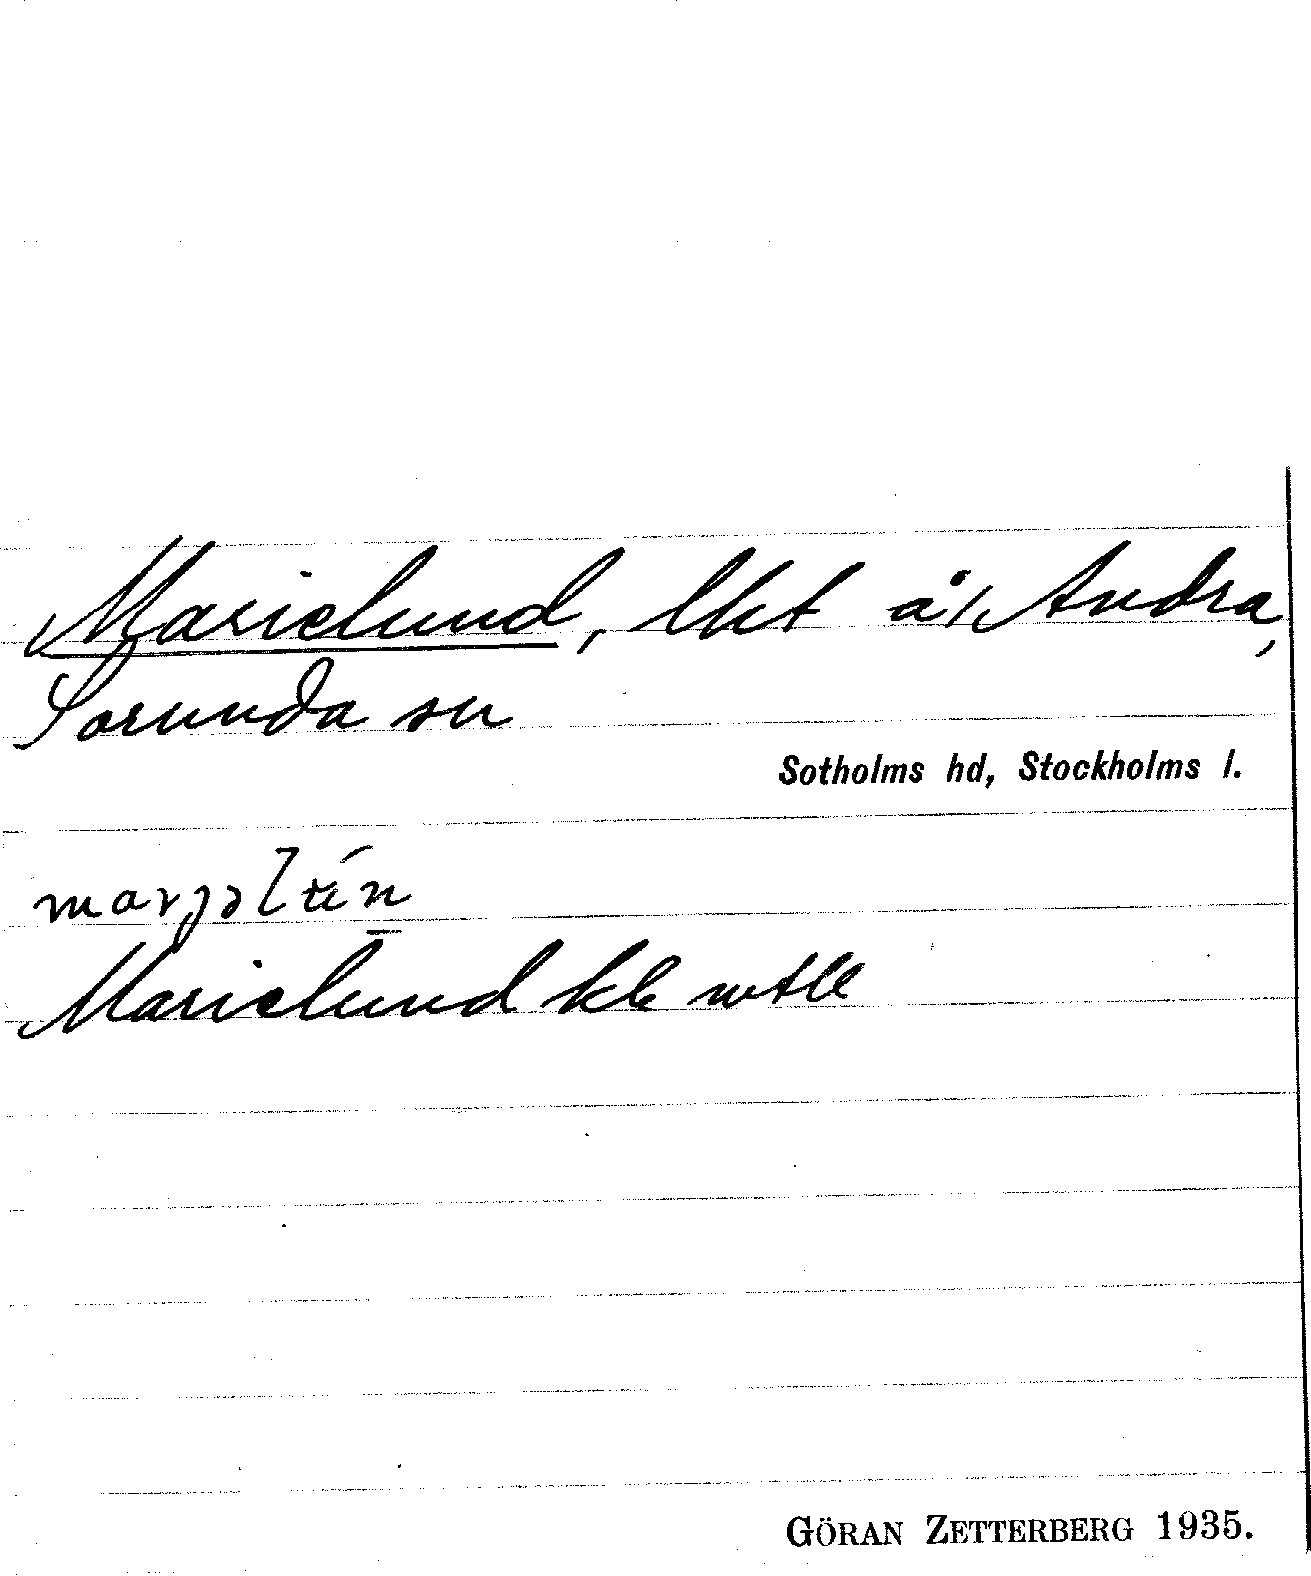 Marielund, lht å/ Andra,
Sorunda sn
Sotholms hd, Stockholms l.
Marielund
GÖRAN ZETTERBERG 1935.